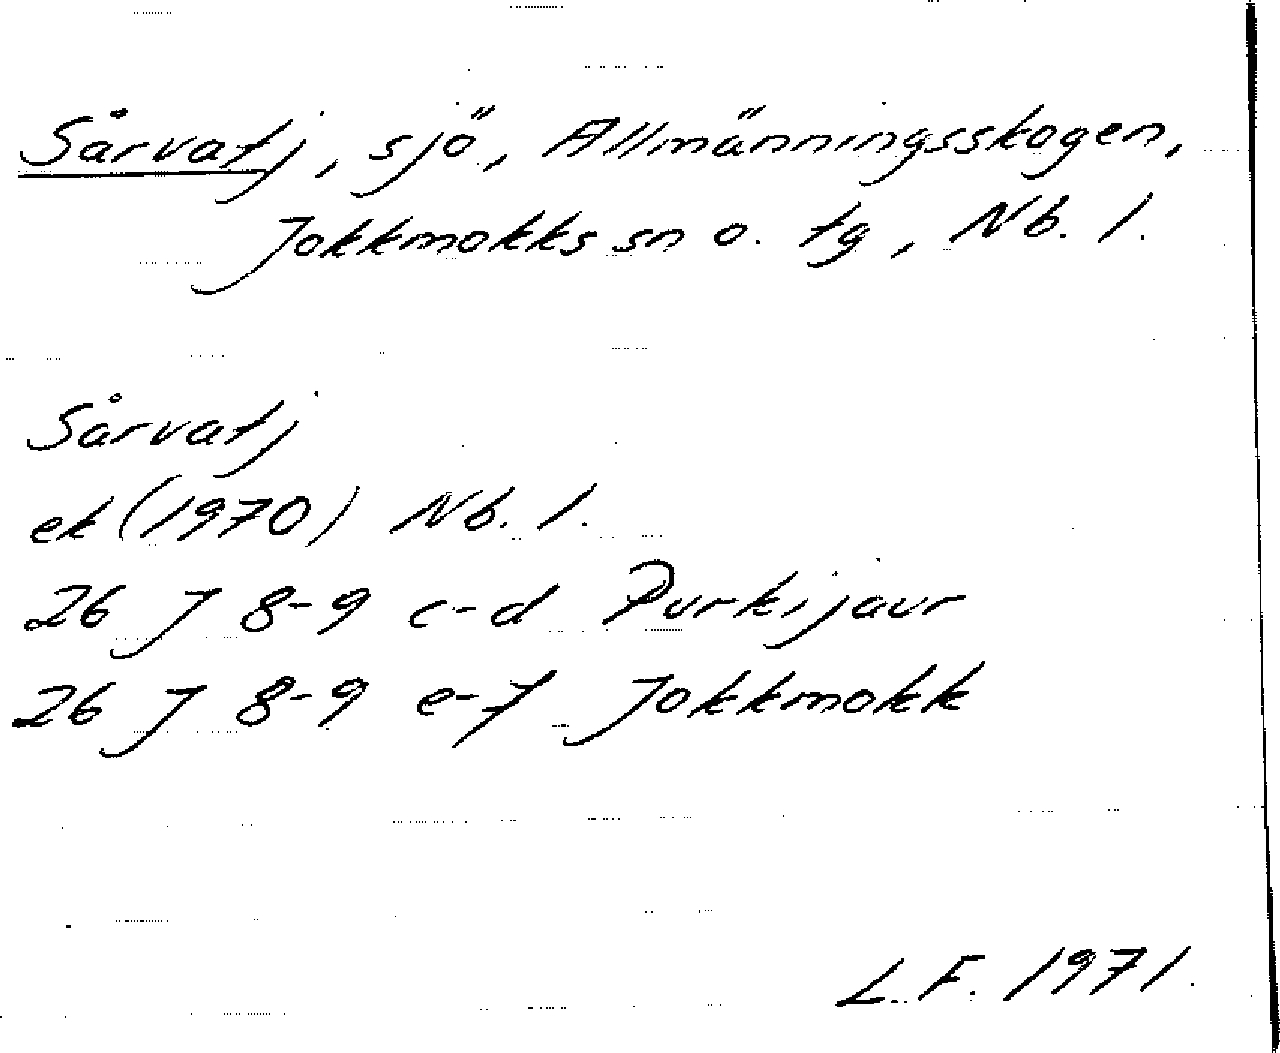 Sårvatj, sjö, Allmänningsskogen,
Jokkmokks sn o. tg, Nb. l.
Sårvatj
ek (1970) Nb. l.
26 J 8-9 c-d Purkijaur
26 J 8-9 e-f Jokkmokk
L.F. 1971.